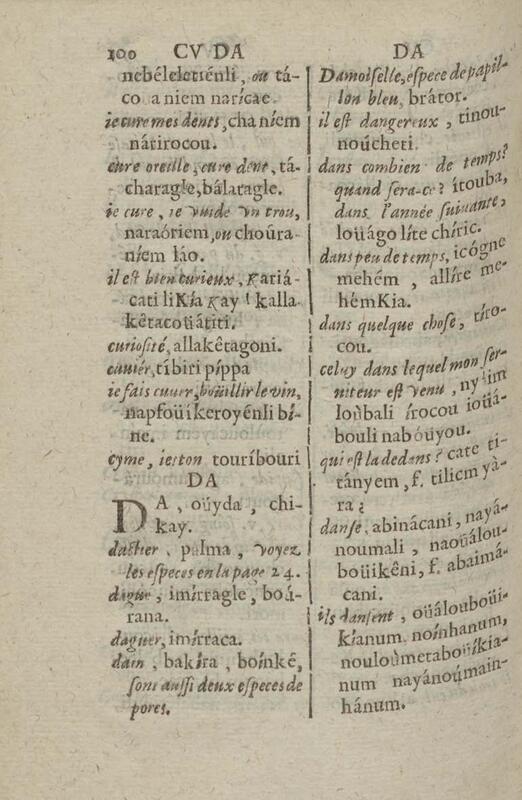 100 CV DA
nebéleletiénli, ou tá-
co a niem narícae.
ie cure mes dents, cha níem
nátirocou.
cure oreille, cure dent, tá-
charagle, bálatagle.
ie cure, ie vuide vn trou,
naraóriem, ou choúra-
níem láo.
il est bien curieux, Katiá-
cati liKía Kay ! kalla
kêtacoüátiti.
curiosité, allakêtagoni.
cuuiér, tíbiri píppa
ie fais cuuer, boüillir le vin,
napfoüíkeroyénli bí-
ne.
cyme, ierton touríbouri
DA
DA, oüyda, chi-
kay.
dactier, palma, voyez
les especes en la page 24.
dague, imírragle, boá-
rana.
daguer, imírraca.
dain, bakíra, boínkê,
sont aussi deux especes de
porcs.
DA
Damoiselle, espece de papil-
lon bleu, brátor.
il est dangereux, tinou-
noúcheti.
dans combien de temps?
quand sera-ce? ítouba,
dans l'année suiuante,
loüágo líte chíric.
dans peu de temps, icógne
mehém, allíre me-
hémKia.
dans quelque chose, tíro-
cou.
celuy dans lequel mon ser-
uiteur est venu, nyim
loùbali írocou ioüá-
bouli nabóüyou.
qui est la dedans? cate ti-
tányem, f. tilicm yà-
ra?
danse, abinácani, nayá-
noumali, naoüálou-
boüikêni, f. abaimá-
cani.
ils dansent, oüálouboüi-
kíanum, noínhanum,
nouloùmetaboüíkia-
num nayánoúmain-
hánum.